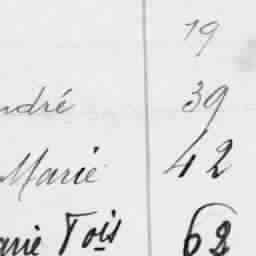 19
ndré 39
Marie 42
arie Tois 62